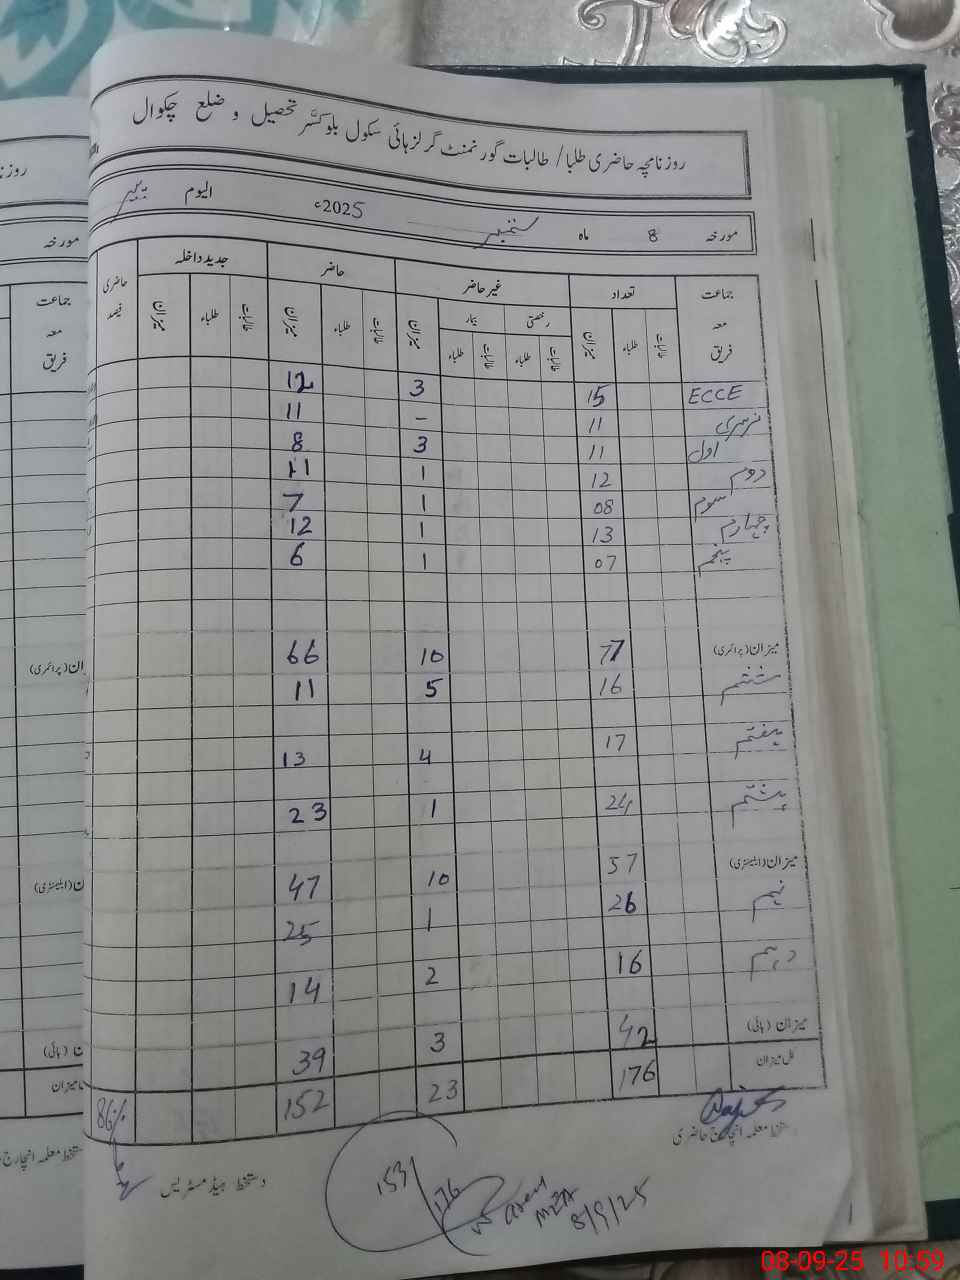 روزنامچہ حاضری طلبا/ طالبات گورنمنٹ گرلز ہائی سکول بلوکسّر تحصیل و ضلع چکوال
مورخہ 8 ماہ ستمبر 2025ء الیوم پیر
جماعت معہ فریق تعداد غیر حاضر حاضر جدید داخلہ حاضری فیصد
رخصتی بیمار
طالبات طلباء میزان طالبات طلباء طالبات طلباء میزان طالبات طلباء میزان طالبات طلباء میزان
ECCE 15 3 12
نرسری 11 – 11
اول 11 3 8
دوم 12 1 11
سوم 08 1 7
چہارم 13 1 12
پنجم 07 1 6
میزان (پرائمری) 77 10 66
ششم 16 5 11
ہفتم 17 4 13
ہشتم 24 1 23
میزان (ایلیمنٹری) 57 10 47
نہم 26 1 25
دہم 16 2 14
میزان (ہائی) 42 3 39
کل میزان 176 23 152 86%
دستخط معلمہ انچارج حاضری
دستخط ہیڈ مسٹریس
153/176
MEA
8/9/25
روزنا
مورخہ
جماعت
معہ
فریق
ان (پرائمری)
ان (ایلیمنٹری)
ن (ہائی)
میزان
ستخط معلمہ انچارج
08-09-25 10:59